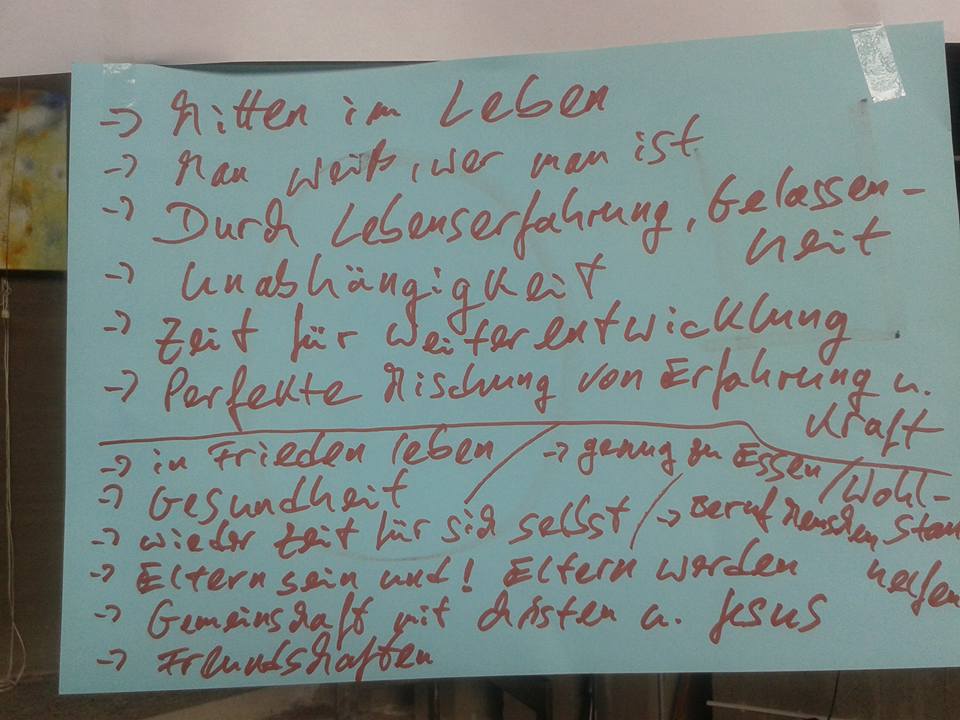 → Mitten im Leben
→ Man weiß, wer man ist
→ Durch Lebenserfahrung, Gelassen-
heit
→ Unabhängigkeit
→ Zeit für Weiterentwicklung
→ Perfekte Mischung von Erfahrung u.
Kraft
→ in Frieden leben → genug zu Essen / Wohl-
stan
→ Gesundheit
→ wieder Zeit für sich selbst / → Beruf Menschen
helfen
→ Eltern sein und! Eltern werden
→ Gemeinschaft mit Christen u. Jesus
→ Freundschaften